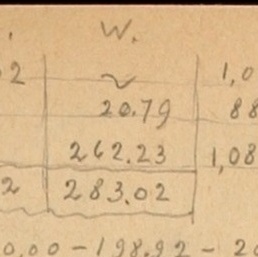 W.
2 ~ 1,0
20.79 88
262.23 1,08
2 283.02
0.00 - 198.92 - 20